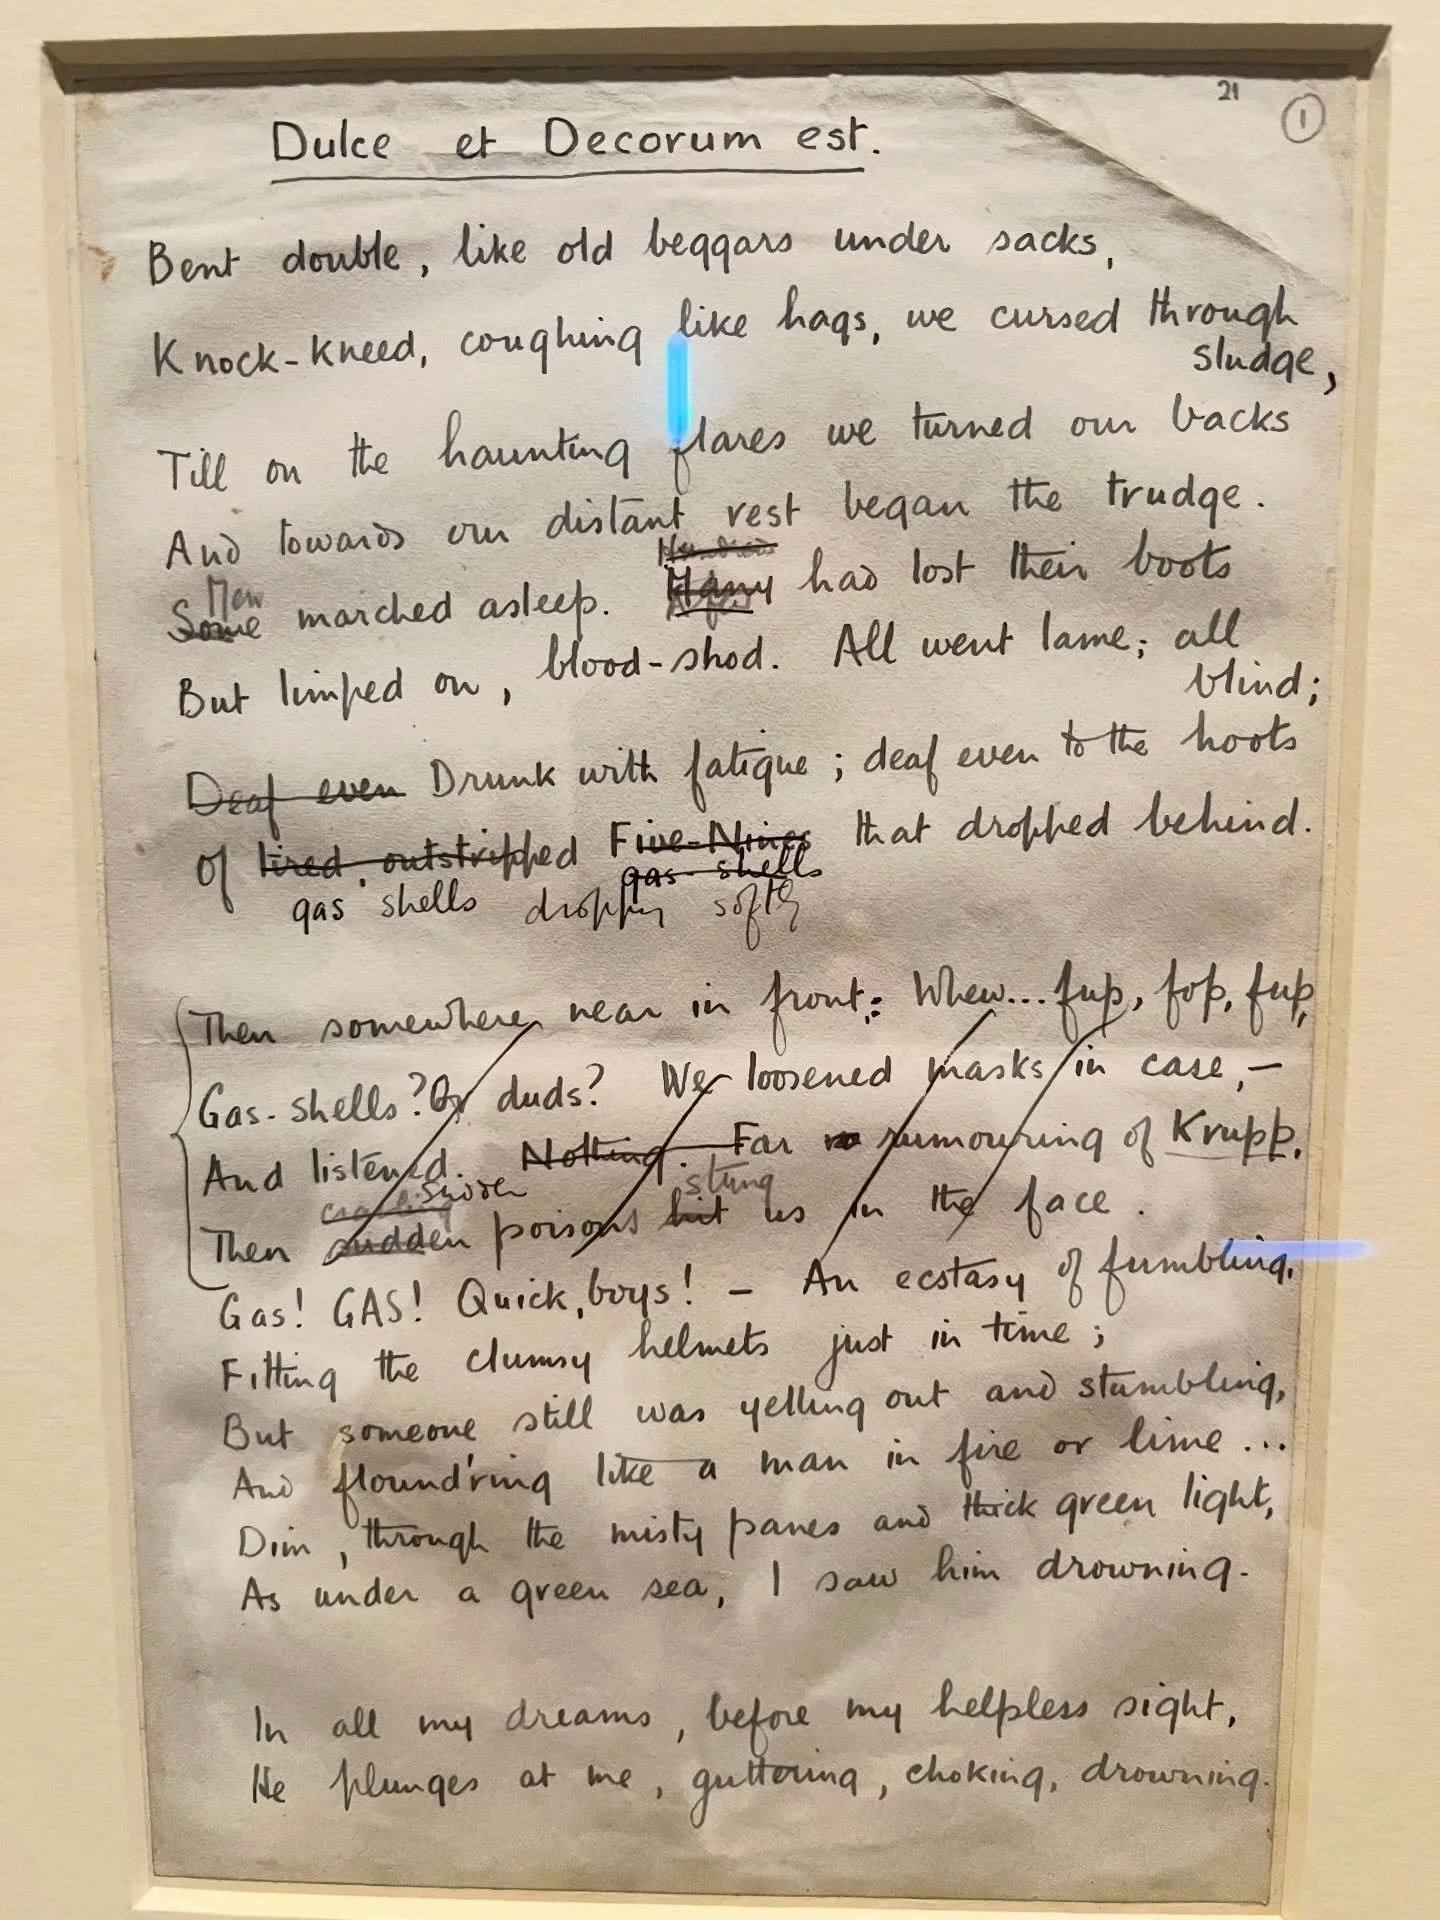 21
1
Dulce et Decorum est.
Bent double, like old beggars under sacks,
Knock-kneed, coughing like hags, we cursed through
sludge,
Till on the haunting flares we turned our backs
And towards our distant rest began the trudge.
Men
Some marched asleep. Many had lost their boots
But limped on, blood-shod. All went lame; all
blind;
Deaf even Drunk with fatigue; deaf even to the hoots
Of tired, outstripped Five-Nines that dropped behind.
gas-shells
gas shells softly
Then somewhere near in front: Whew... fup, fop, fup,
Gas-shells? Or duds? We loosened masks in case,—
And listened. Nothing. Far rumouring of Krupp.
sudden stung
Then sudden poisons hit us in the face.
Gas! GAS! Quick, boys! — An ecstasy of fumbling,
Fitting the clumsy helmets just in time;
But someone still was yelling out and stumbling,
And flound'ring like a man in fire or lime...
Dim, through the misty panes and thick green light,
As under a green sea, I saw him drowning.
In all my dreams, before my helpless sight,
He plunges at me, guttering, choking, drowning.